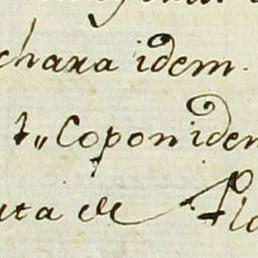 chara idem.
1,, Copon idem
ata de Pla